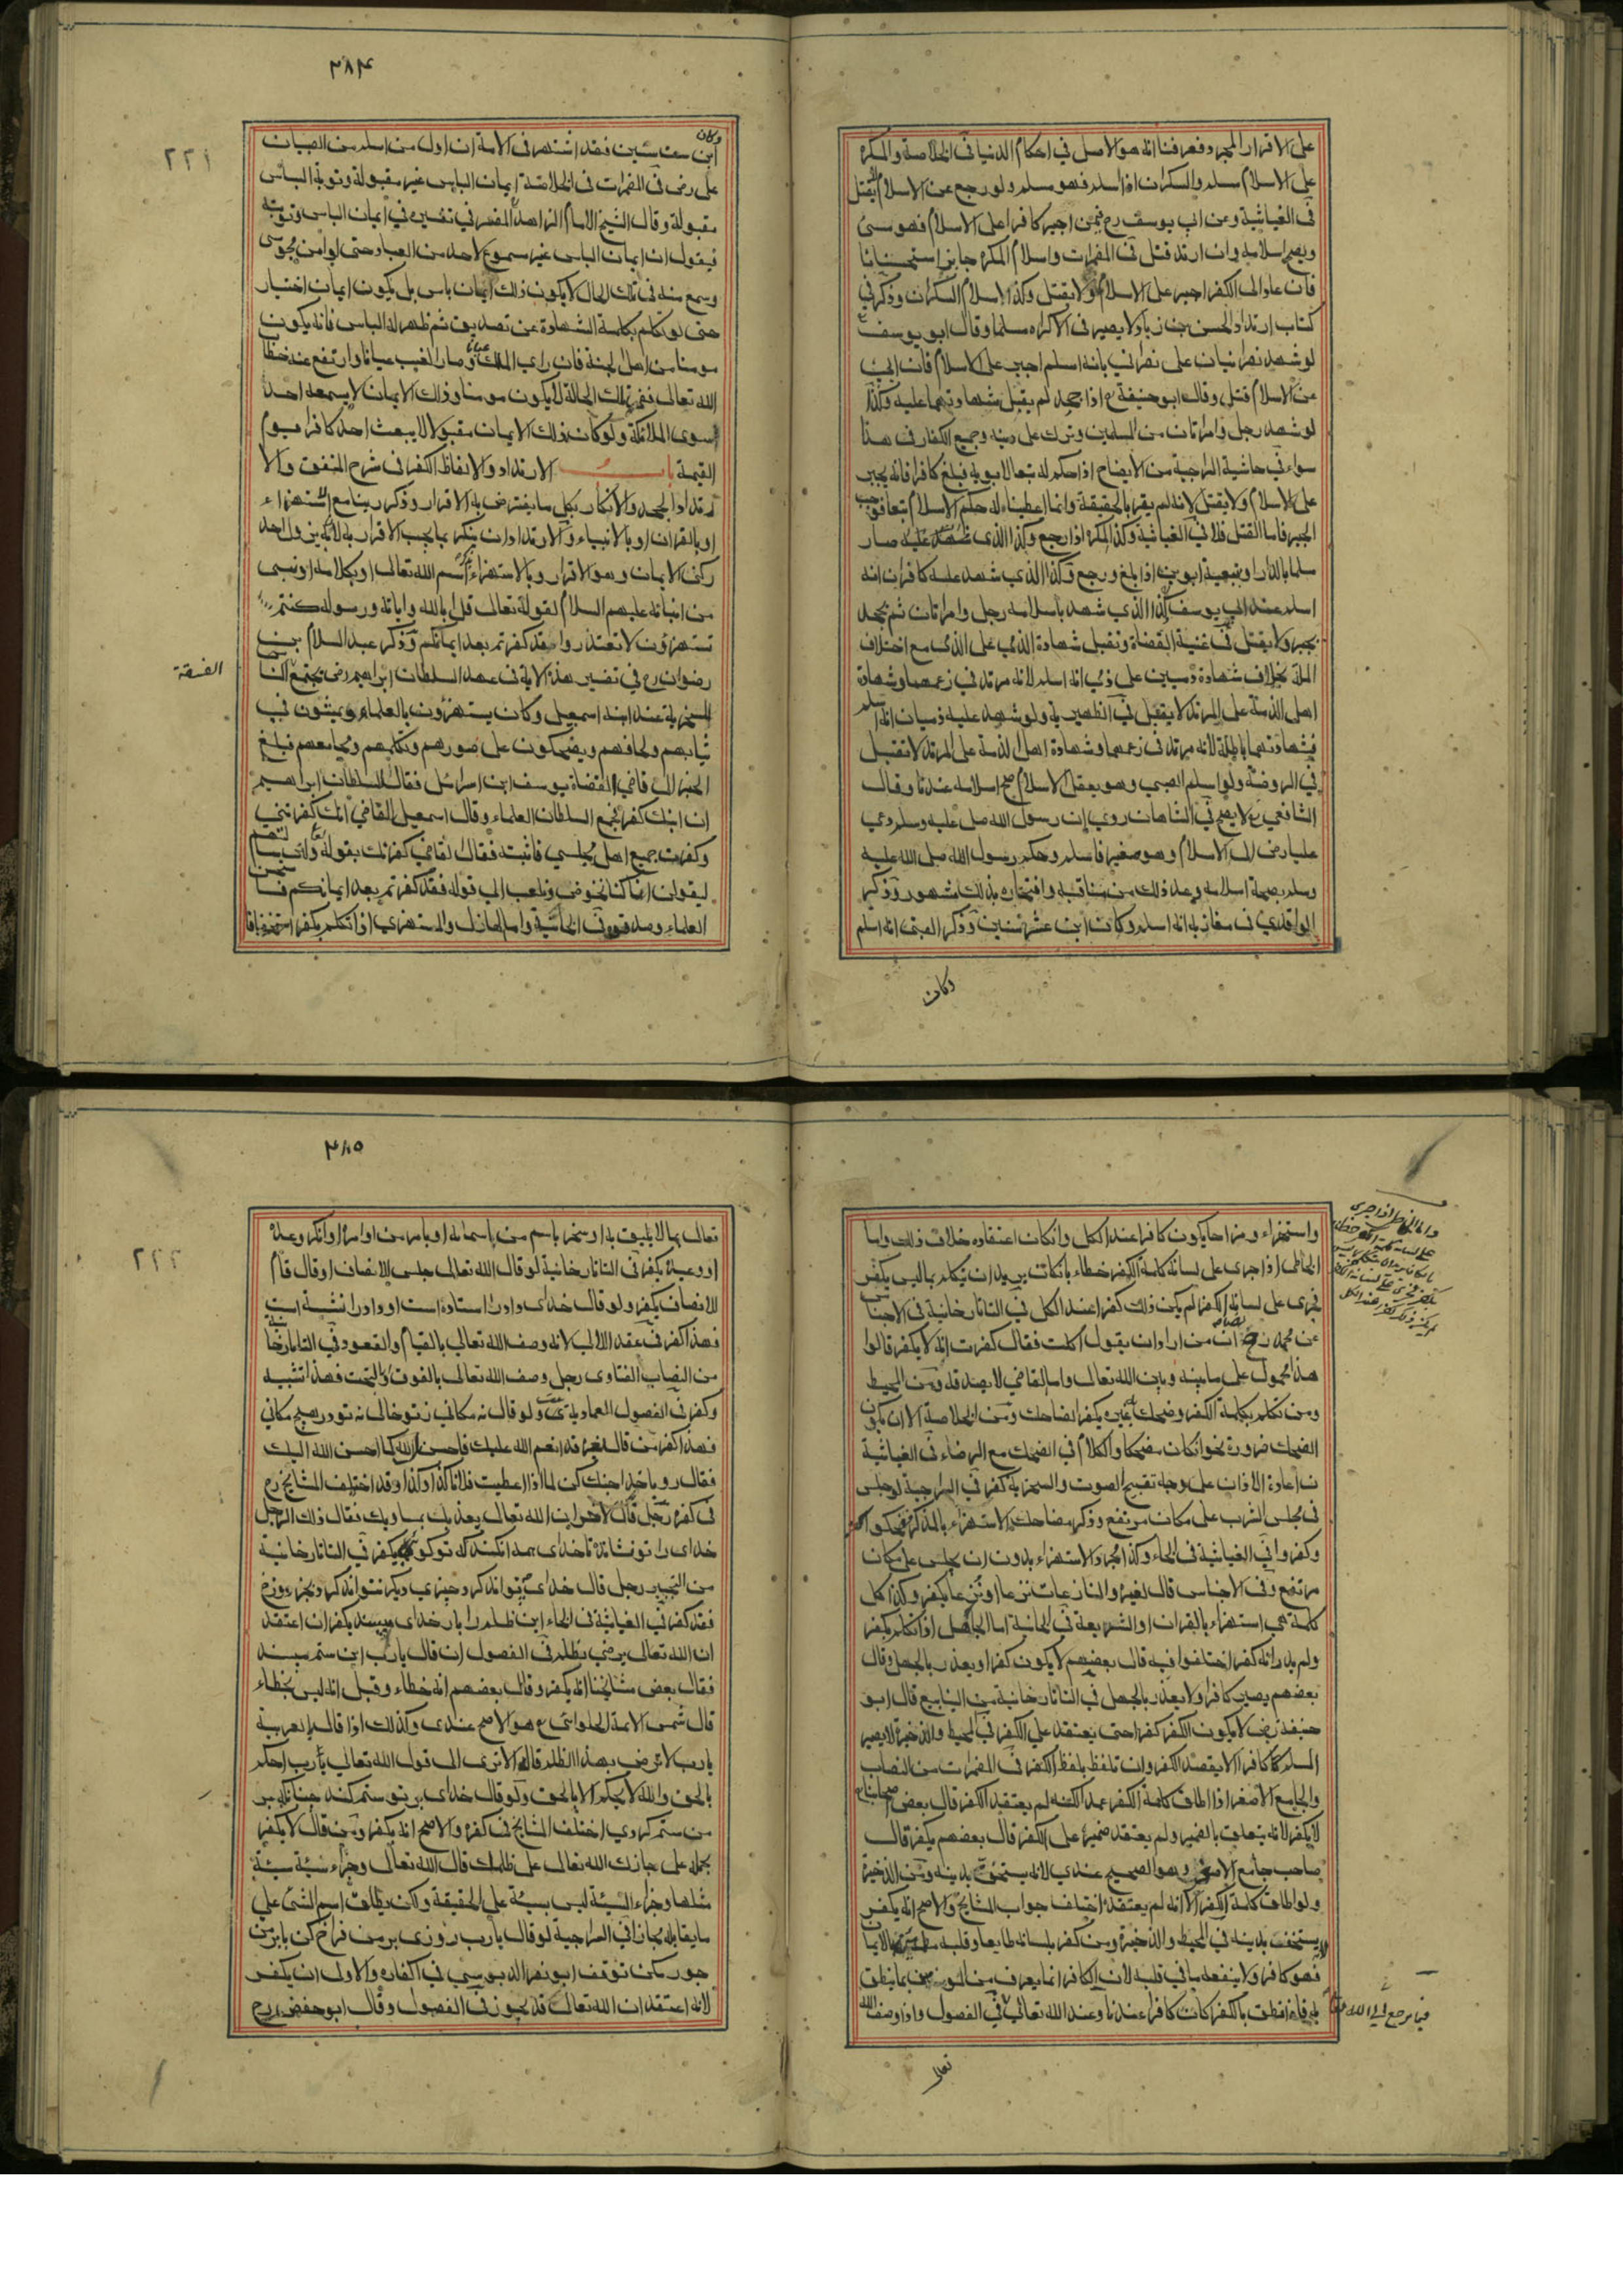 على الاقرار المجرد فعرفنا انه هو الاصل في احكام الدنيا في الخلاصة والمكره
على الاسلام مسلم والسكران اذا اسلم فهو مسلم ولو رجع عن الاسلام لا يقتل
في الغياثية وعن ابي يوسف رح فيمن اجبر كافرا على الاسلام فهو
ويصح اسلامه وان ارتد قتل في المضمرات واسلام المكره جايز استحسانا
فان عاد الى الكفر اجبر على الاسلام ولا يقتل وكذا اسلام السكران وذكر في
كتاب ارتداد الحسن بن زياد لا يصير في الاكراه مسلما وقال ابو يوسف
لو شهد نصرانيان على نصراني بانه اسلم اجبر على الاسلام فان ابى
عن الاسلام قتل وقال ابو حنيفة رح اذا جحد لم يقبل شهادتهما عليه وكذا
لو شهد رجل وامراتان من المسلمين وترك على دينه وجميع الكفار في هذا
سواء في حاشية السراجية من الايضاح اذا حكم له تبعا لابويه فبلغ كافرا فانه يجبر
على الاسلام ولا يقتل لانه لم يقر بالحقيقة وانما اعطيناه له حكم الاسلام تبعا فوجب
الجبر فاما القتل فلا في الغياثية وكذا المكره اذا رجع وكذا الذي شهد عليه صار
مسلما بالدار او بتبعية ابويه اذا بلغ ورجع وكذا الذي شهد عليه كافران انه
اسلم عند ابي يوسف وكذا الذي شهد باسلامه رجل وامراتان ثم يجحد
يجبر ولا يقتل في غنية القضاة وتقبل شهادة الذمي على الذمي مع اختلاف
الملة بخلاف شهادة ذميين على ذمي انه اسلم لانه مرتد في زعمهما وشهادة
اهل الذمة على المرتد لا يقبل في الظهيرية ولو شهد عليه ذميان انه اسلم
فشهادتهما باطلة لانه مرتد في زعمهما وشهادة اهل الذمة على المرتد لا تقبل
في الروضة ولو اسلم الصبي وهو يعقل الاسلام صح اسلامه عندنا وقال
الشافعي رح لا يصح في الشاهان روي ان رسول الله صلى الله عليه وسلم دعي
عليا رض الى الاسلام وهو صغير فاسلم وحكم رسول الله صلى الله عليه
وسلم بصحة اسلامه وعد ذلك من مناقبه وافتخاره بذلك مشهور وذكر
الواقدي في مغازيه انه اسلم وكان ابن عشر سنين وذكر العتبي انه اسلم
وكان
٣٨٤
٢٢١
وكان
ابن ست سنين فقد اشتهر في الامة ان اول من اسلم من الصبيان
على رض في المضمرات في الخلاصة ايمان الباس غير مقبولة وتوبة الباس
مقبولة وقال الشيخ الامام الزاهد المفسر في تفسيره في ايمان الباس وتوبته
فيقول ان ايمان الباس غير مسموع لاحد من العباد حتى لو امن مجوسي
وسمع منه في تلك الحال لا يكون ذلك ايمان باس بل يكون ايمان اختيار
حتى لو تكلم بكلمة الشهادة عن تصديق ثم ظهر له الباس فانه يكون
مومنا من اهل الجنة فان راى الملك عيانا وصار الغيب عيانا وارتفع عنه خطاب
الله تعالى ففي تلك الحالة لا يكون مومنا وذلك الايمان لا يسمعه احد
سوى الملائكة ولو كان ذلك الايمان مقبولا لا يبعث احد كافرا يوم
القيمة باب الارتداد والالفاظ الكفر في شرح المتفق والا
رتداد الجحد والانكار بكل ما يفترض به الاقرار وذكر ربنا مع الاستهزاء
او بالقران او بالانبياء والارتداد ان ينكر بما يجب الاقرار به لانه من واحد
ركني الايمان وهو الاقرار وبالاستهزاء باسم الله تعالى او بكلامه او نبي
من انبيائه عليهم السلام لقوله تعالى قل ابالله واياته ورسوله كنتم
تستهزؤن لا تعتذروا قد كفرتم بعد ايمانكم وذكر عبد السلام بن
رضوان رح في تفسير هذه الاية في عهد السلطان ابراهيم رض تجتمع الناس
الفسقة
المسخرية عند ابنه اسمعيل وكان يستهزؤن بالعلماء ويمشون في
ثيابهم ولحافهم ويضحكون على صورهم وتكلمهم ومجامعهم فبلغ
الخبر الى قاضي القضاة يوسف ابن اسرائل فقال للسلطان ابراهيم
ان ابنك كفر فجمع السلطان العلماء وقال اسمعيل القاضي انك كفرتني
وكفرت جميع اهل مجلسي فاثبته فقال القاضي كفرتك بقوله ولئن سالتهم
ليقولن انما كنا نخوض ونلعب الى قوله قد كفرتم بعد ايمانكم
العلماء وصدقوه في الحاشية واما الهازل والمستهزى اذا تكلم بكفر استخفافا
واستهزاء ومزاحا يكون كافرا عند الكل وانكان اعتقاده خلاف ذلك واما
الخاطى اذا جرى على لسانه كلمة الكفر خطاء بانكان يريد ان يتكلم بما ليس بكفر
فجرى على لسانه الكفر لم يكن ذلك كفرا عند الكل في التاتارخانية في الاجناس
عن محمد رح نصا ان من اراد ان يقول اكلت فقال كفرت انه لا يكفر قالوا
هذا محمول على ما بينه وبين الله تعالى واما القاضي لا يصدقه ومن المحيط
ومن تكلم بكلمة الكفر وضحك غيره يكفر الضاحك ومن الخلاصة الا ان يكون
الضحك ضرورة نحو انكان مضحكا والكلام في الضحك مع الرضاء في الغياثية
ن اعادة الاذان على وجه تقبيح الصوت والسخرية كفر في السراجية لو جلس
في مجلس الشرب على مكان مرتفع وذكر مضاحك الاستهزاء بالمذكر فضحكوا
وكفروا في الغياثية في الحاء وكذا مجرد الاستهزاء بدون ان يجلس على مكان
مرتفع وفي الاجناس قال لغيره والنازعات نزعا او نزعا يكفر وكذا كل
كلمة هي استهزاء بالقران او الشريعة في الخانية اما الجاهل اذا تكلم بكفر
ولم يدر انه كفر اختلفوا فيه قال بعضهم لا يكون كفرا ويعذر بالجهل وقال
بعضهم يصير كافرا ولا يعذر بالجهل في التاتارخانية من الينابيع قال ابو
حنيفة رض لا يكون الكفر كفرا حتى يعتقد على الكفر في المحيط والذخيرة لا يصير
المسلم كافرا الا يقصد الكفر وان تلفظ بلفظ الكفر في المضمرات من النصاب
والجامع الاصغر اذا اطلق كلمة الكفر عمدا لكنه لم يعتقد الكفر قال بعض اصحابنا
لا يكفر لانه يتعلق بالضمير ولم يعتقد ضميره على الكفر قال بعضهم يكفر قال
صاحب جامع الاصغر وهو الصحيح عندي لانه يستخف بدينه ومن الذخيرة
ولو اطلق كلمة الكفر الا انه لم يعتقد اختلف جواب المشايخ والاصح انه يكفر
لانه يستخف بدينه في المحيط والذخيرة ومن كفر بلسانه طايعا وقلبه مطمئن بالايمان
فهو كافر ولا ينفعه ما في قلبه لان الكافر انما يعرف من المومن بما ينطق
به فاذا نطق بالكفر كان كافرا عندنا وعند الله تعالى في الفصول واذا وصف الله
تعالى
واما الخاطى اذا جرى
على لسانه كلمة الكفر خطاء
٣٨٥
٢٢٢
تعالى بما لا يليق به او سخر باسم من اسمائه او بامر من اوامره او انكر وعده
او وعيده يكفر في التاتارخانية لو قال الله تعالى جلس للانصاف او قال قام
للانصاف يكفر ولو قال خداى داد را استاده است او داد را نشسته است
فهذا كفر في عقد اللالى لانه وصف الله تعالى بالقيام والقعود في التاتارخانية
من النصاب الفتاوى رجل وصف الله تعالى بالفوق والتحت فهذا تشبيه
وكفر في الفصول العمادية ولو قال نه مكاني ز تو خالى نه تو در هيچ مكاني
فهذا كفر من قال لغيره قد انعم الله عليك فاحسن الى الله كما احسن الله اليك
فقال رو با خدا جنك كن لماذا اعطيت فلانا كذا وكذا وقد اختلف المشايخ رح
في كفره رجل قال لاخر ان الله تعالى يعذبك بمساويك فقال ذلك الرجل
خداى را تو نشانده تا خداى همه ان كند كه تو كوى يكفر في التاتارخانية
من التجنيس رجل قال خداى بتواند كرد چيزى ديكر نتواند كرد
فقد كفر في الغياثية في الحاء اين ظلم را يا رب خداى مپسند يكفر ان اعتقد
ان الله تعالى يرضى بظلم في الفصول ان قال يا رب اين ستم مپسند
فقال بعض مشايخنا انه يكفر وقال بعضهم انه خطاء وقيل انه ليس بخطاء
قال شمس الائمة الحلوائي رح هو الاصح عندى وكذلك اذا قال بالعربية
يا رب لا ترض بهذا الظلم قال الا ترى الى قول الله تعالى يا رب احكم
بالحق والله لا يحكم الا بالحق ولو قال خداى بر تو ستم كند چنانكه بر
من ستم كردي اختلف المشايخ في كفره والاصح انه يكفر ومن قال لا يكفر
يحمله على جازاك الله تعالى على ظلمك قال الله تعالى وجزاء سيئة سيئة
مثلها وجزاء السيئة ليس بسيئة على الحقيقة ولكن يطلق اسم الشى على
ما يقابله مجازا في السراجية لو قال يا رب روزى بر من فراخ كن يا بر من
جور مكن توقف ابو نصر الدبوسي في اكفاره والاولى ان يكفر
لانه اعتقد ان الله تعالى قد يجوز في الفصول وقال ابو حفص رح